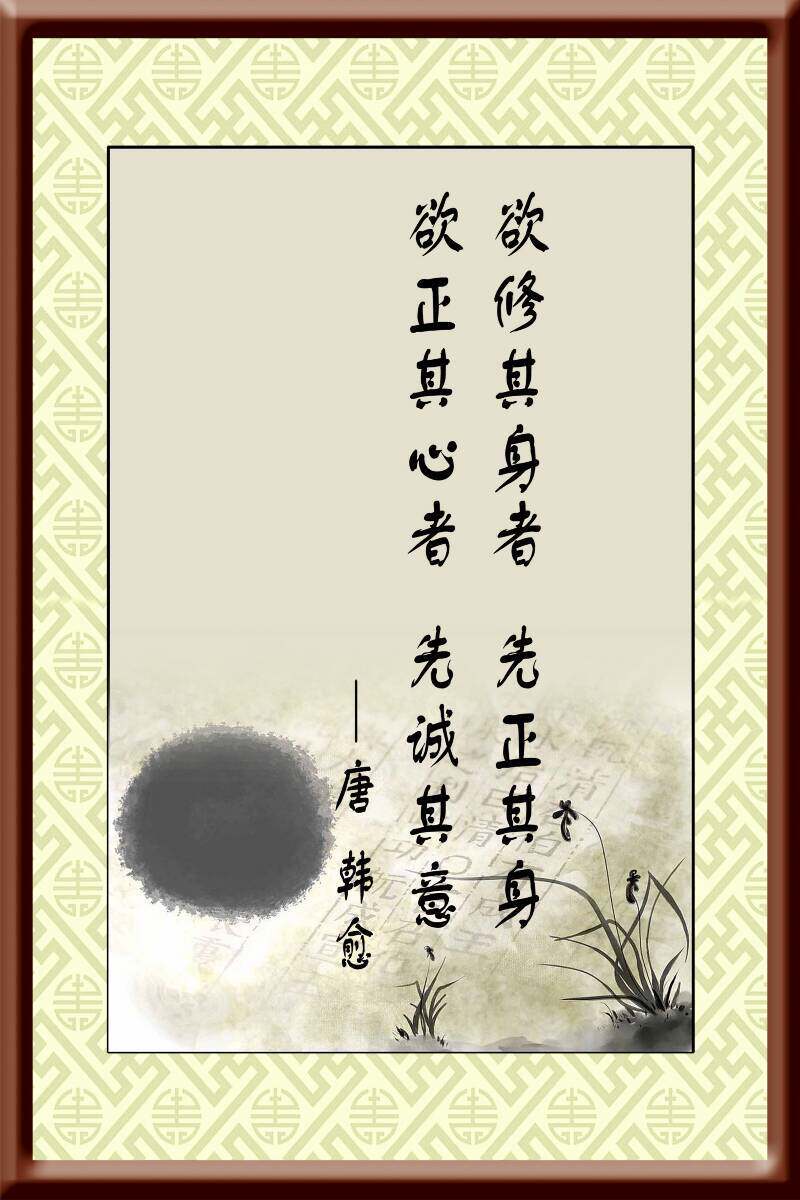 欲修其身者 先正其身
欲正其心者 先诚其意
—唐 韩愈